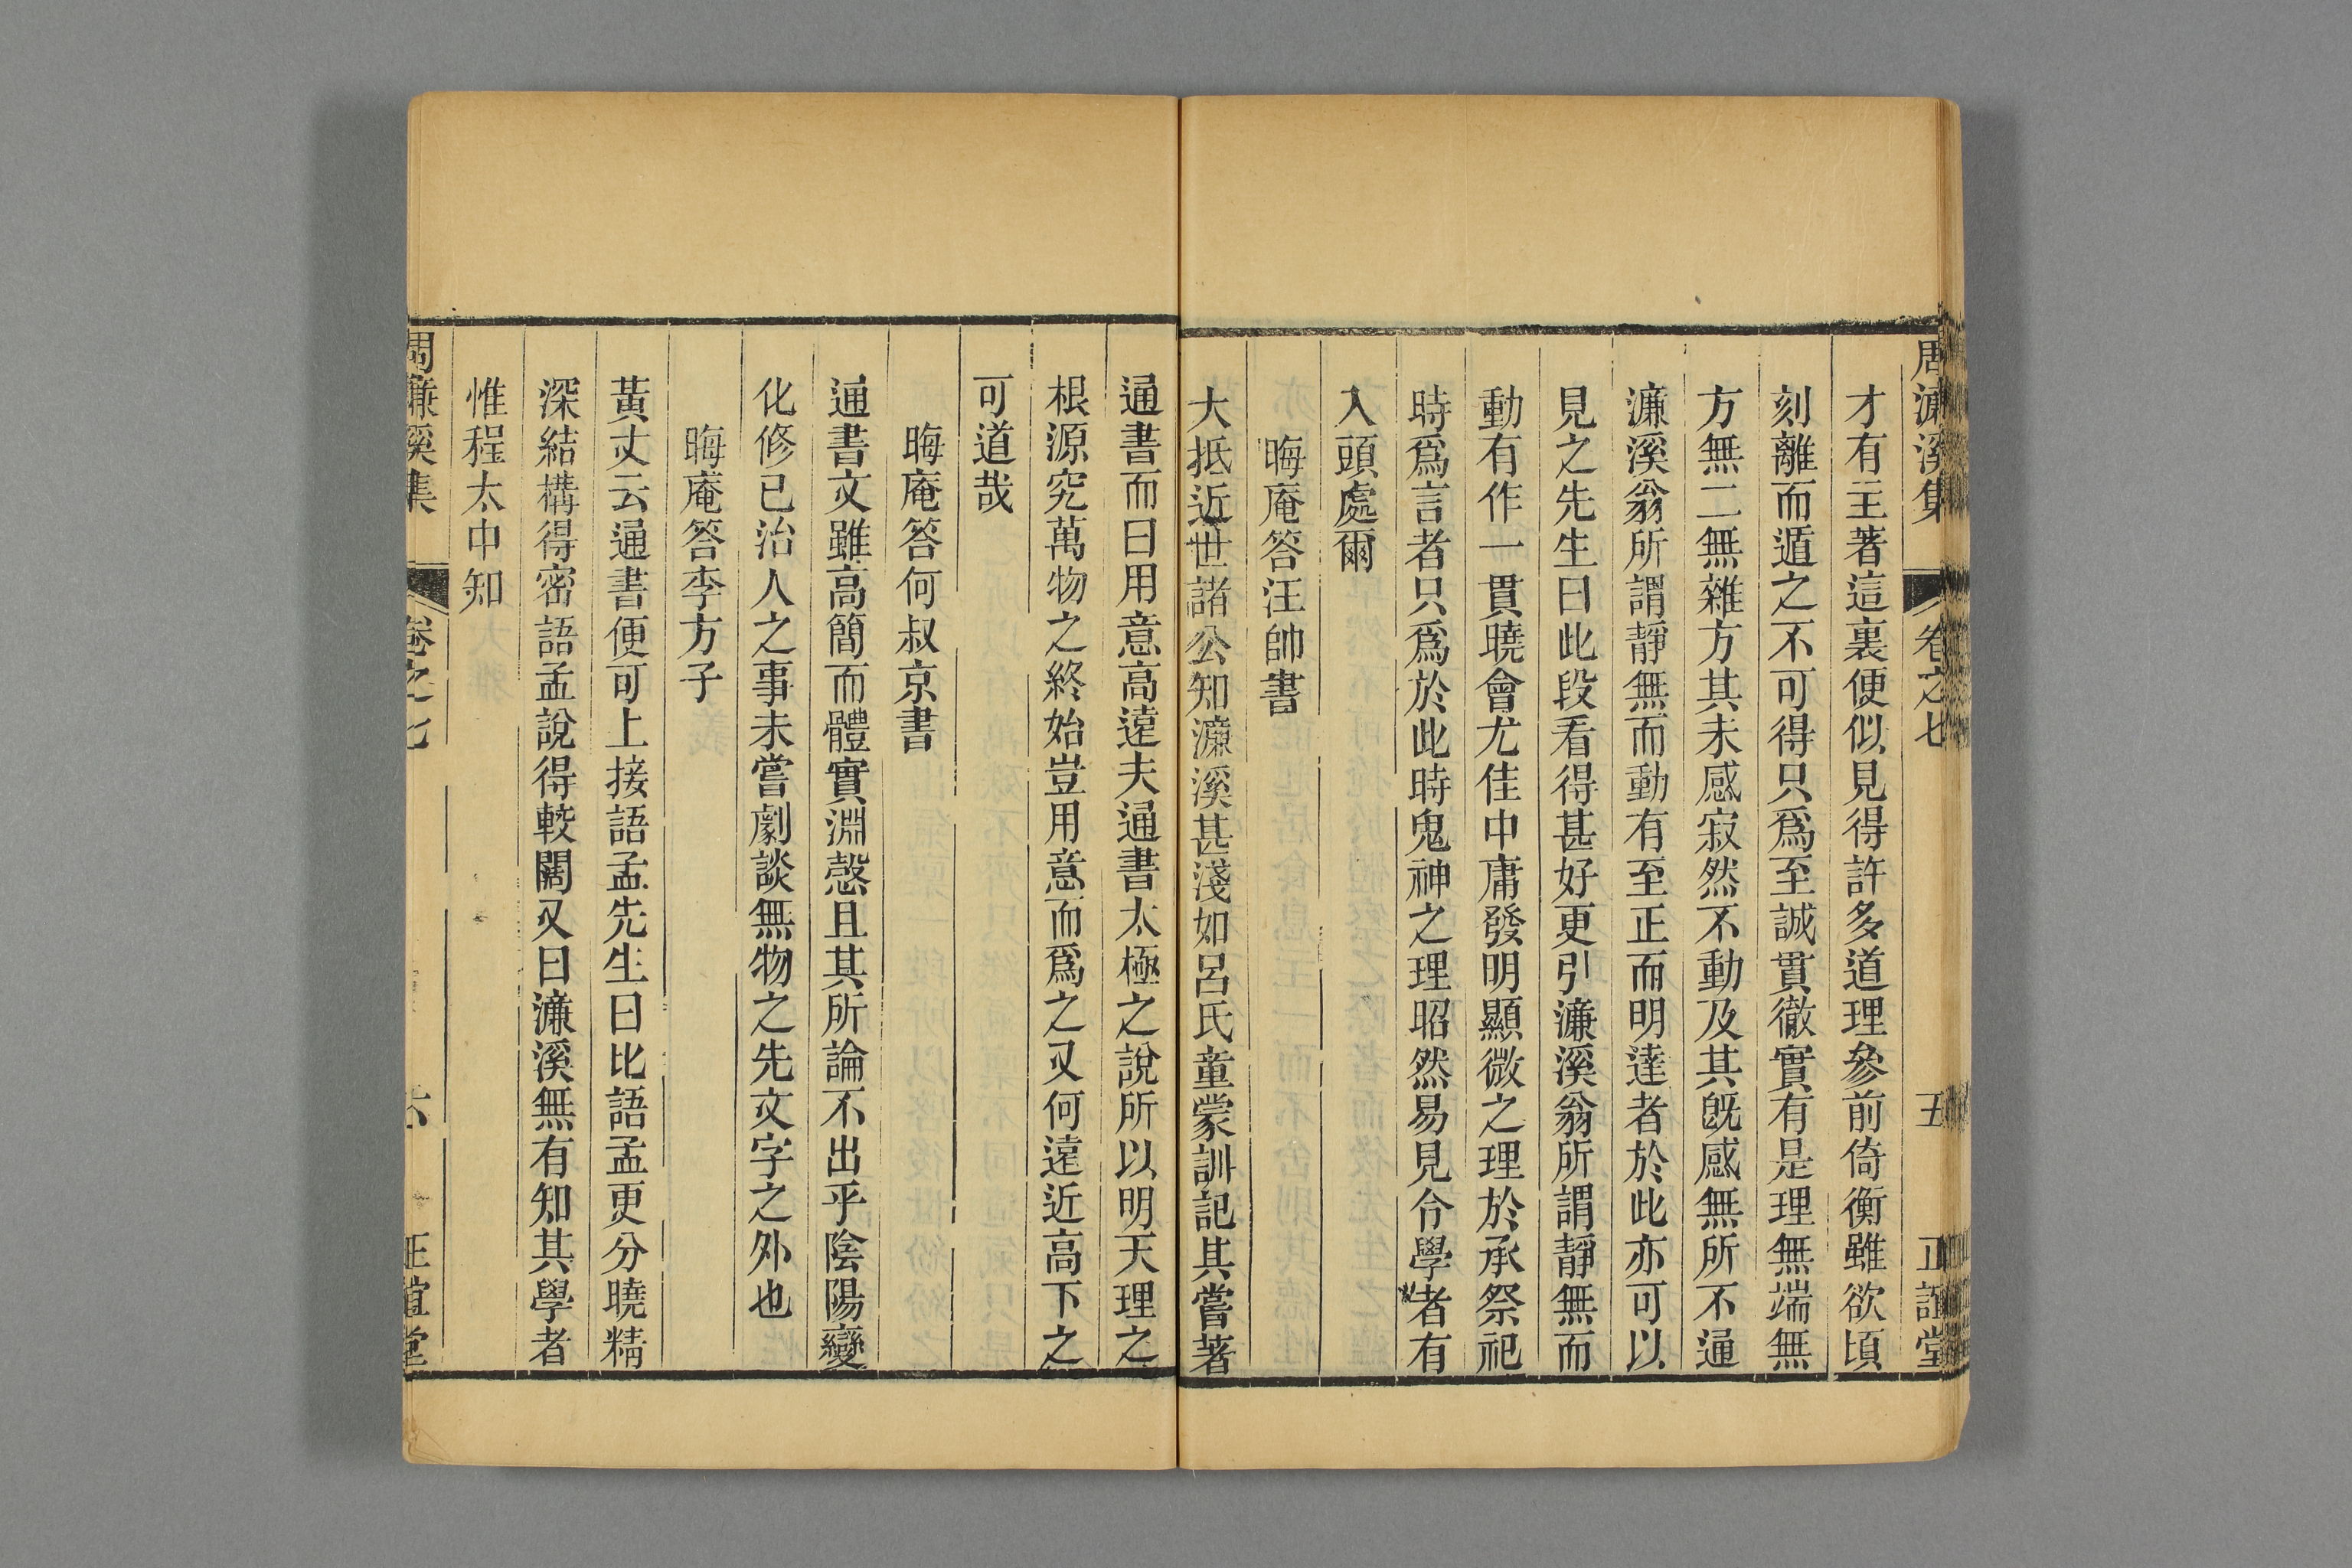 周濂溪集 卷之七 五 正誼堂
才有主著這裏便似見得許多道理參前倚衡雖欲頃
刻離而遁之不可得只爲至誠貫徹實有是理無端無
方無二無雜方其未感寂然不動及其旣感無所不通
濂溪翁所謂靜無而動有至正而明達者於此亦可以
見之先生曰此段看得甚好更引濂溪翁所謂靜無而
動有作一貫曉會尤佳中庸發明顯微之理於承祭祀
時爲言者只爲於此時鬼神之理昭然易見今學者有
入頭處爾
晦庵答汪帥書
大抵近世諸公知濂溪甚淺如呂氏童蒙訓記其嘗著
通書而曰用意高遠夫通書太極之說所以明天理之
根源究萬物之終始豈用意而爲之又何遠近高下之
可道哉
晦庵答何叔京書
通書文雖高簡而體實淵慤且其所論不出乎陰陽變
化修已治人之事未嘗劇談無物之先文字之外也
晦庵答李方子
黃丈云通書便可上接語孟先生曰比語孟更分曉精
深結構得密語孟說得較闊又曰濂溪無有知其學者
惟程太中知
周濂溪集 卷之七 六 正誼堂